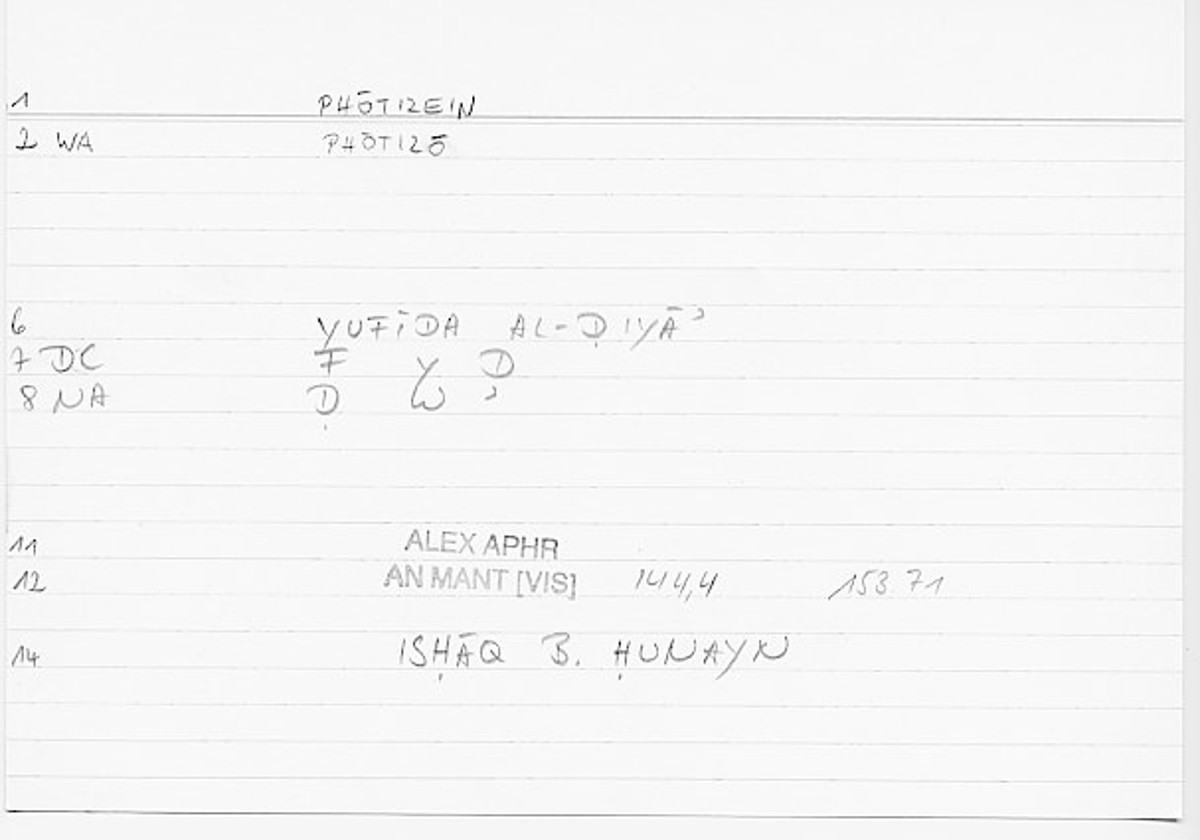 1 PHŌTIZEIN
2 WA PHŌTIZŌ
6 YUFĪDA AL-ḌIYĀʾ
7 DC F Y D
8 NA Ḍ W ʾ
11 ALEX APHR
12 AN MANT [VIS] 144,4 153 71
14 ISḤĀQ B. ḤUNAYN